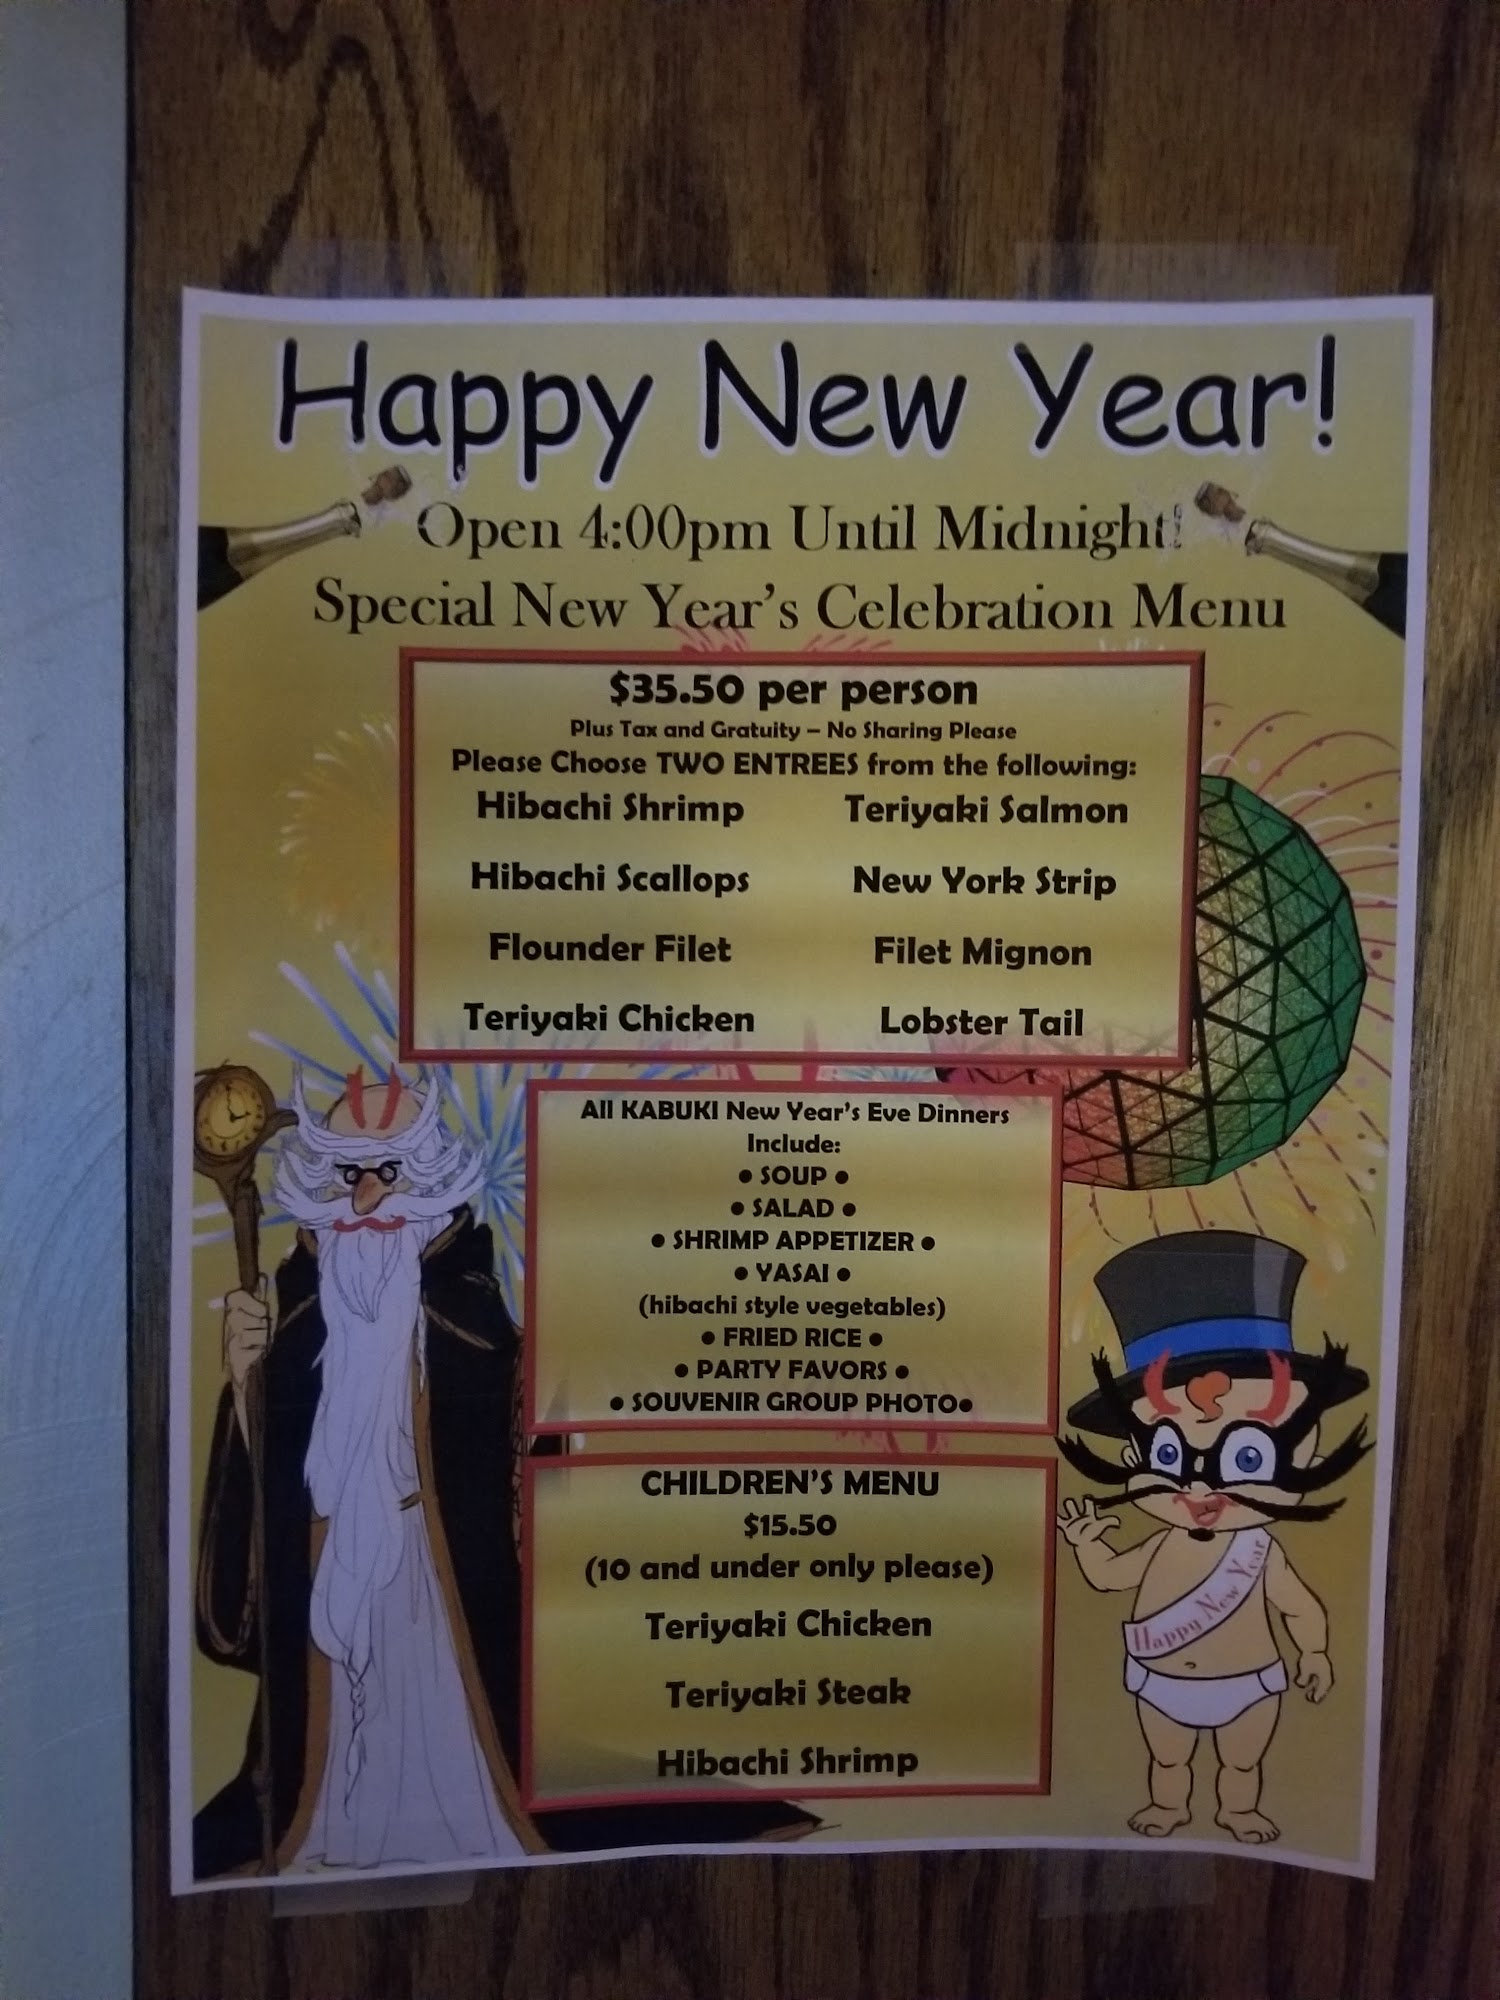 Happy New Year!
Open 4:00pm Until Midnight!
Special New Year's Celebration Menu
$35.50 per person
Plus Tax and Gratuity – No Sharing Please
Please Choose TWO ENTREES from the following:
Hibachi Shrimp Teriyaki Salmon
Hibachi Scallops New York Strip
Flounder Filet Filet Mignon
Teriyaki Chicken Lobster Tail
All KABUKI New Year's Eve Dinners
Include:
● SOUP ●
● SALAD ●
● SHRIMP APPETIZER ●
● YASAI ●
(hibachi style vegetables)
● FRIED RICE ●
● PARTY FAVORS ●
● SOUVENIR GROUP PHOTO●
CHILDREN'S MENU
$15.50
(10 and under only please)
Teriyaki Chicken
Teriyaki Steak
Hibachi Shrimp
Happy New Year